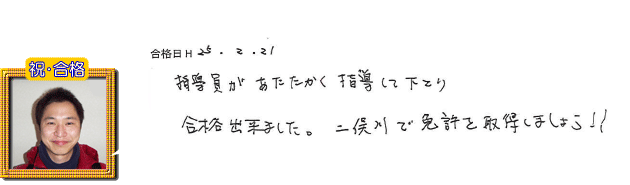 祝・合格
合格日 H 25．2．21
指導員があたたかく指導して下さり
合格出来ました。二俣川で免許を取得しましょう!!